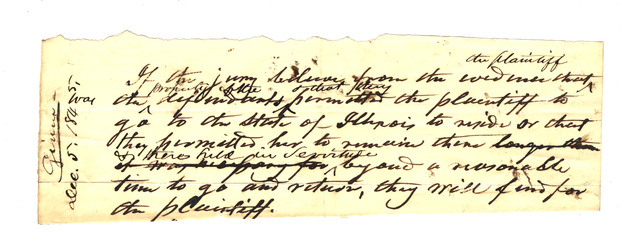 the plaintiff
If the jury believe from the evidence that
property of the or that they
was the defendants permitted the plaintiff to
go to the State of Illinois to reside or that
they permitted her to remain there longer than
& there held in servitude
it was necessary for beyond a reasonable
time to go and return, they will find for
the plaintiff.
Given
Dec. 5. 1845.